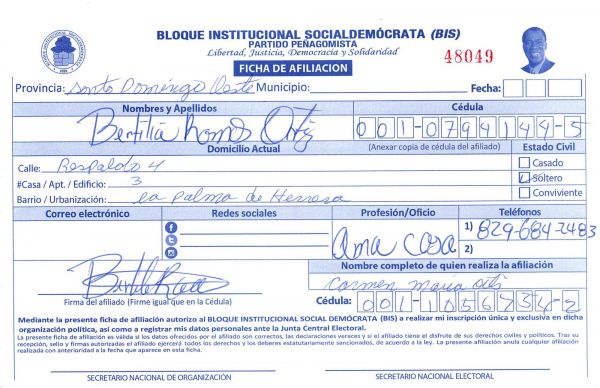 BLOQUE INSTITUCIONAL SOCIALDEMÓCRATA (BIS)
PARTIDO PEÑAGOMISTA
Libertad, Justicia, Democracia y Solidaridad
FICHA DE AFILIACION
48049
Provincia: Santo Domingo Oeste Municipio: Fecha:
Nombres y Apellidos Cédula
Bertilia Ramos Ortiz 001-0794144-5
Domicilio Actual (Anexar copia de cédula del afiliado) Estado Civil
Calle: Respaldo 4 Casado
#Casa / Apt. / Edificio: 3 Soltero
Barrio / Urbanización: La Palma de Herrera Conviviente
Correo electrónico Redes sociales Profesión/Oficio Teléfonos
Ama Casa 1) 829-684-2483
2)
Nombre completo de quien realiza la afiliación
Carmen Maria
Firma del afiliado (Firme igual que en la Cédula) Cédula: 001-1056734-2
Mediante la presente ficha de afiliación autorizo al BLOQUE INSTITUCIONAL SOCIAL DEMÓCRATA (BIS) a realizar mi inscripción única y exclusiva en dicha
organización política, así como a registrar mis datos personales ante la Junta Central Electoral.
La presente ficha de afiliación es válida si los datos ofrecidos por el afiliado son correctos, las declaraciones veraces y si el afiliado tiene el disfrute de sus derechos civiles y políticos. Tras su
recepción, sello y firmas autorizadas el afiliado ejercerá todos los derechos y los deberes estatutariamente sancionados, de acuerdo a la ley. La presente afiliación anula cualquier afiliación
realizada con anterioridad a la fecha que aparece en esta ficha.
SECRETARIO NACIONAL DE ORGANIZACIÓN SECRETARIO NACIONAL ELECTORAL